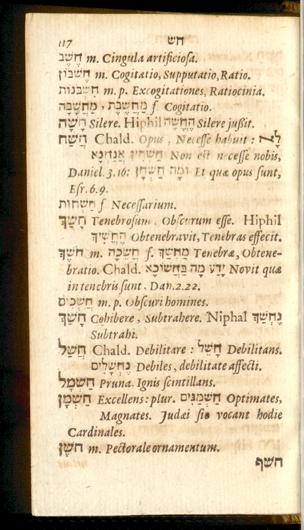 117 חש
חֵשֶׁב m. Cingula artificiosa.
חֶשְׁבּוֹן m. Cogitatio, Supputatio, Ratio.
חִשְּׁבֹנוֹת m. p. Excogitationes, Ratiocinia.
מַחֲשֶׁבֶת, מַחֲשָׁבָה f. Cogitatio.
חָשָׁה Silere. Hiphil הֶחֱשָׁה Silere jussit.
חֲשַׁח Chald. Opus, Necesse habuit: לָא
חַשְׁחִין אֲנַחְנָא Non est necesse nobis,
Daniel. 3.16: וּמָה חַשְׁחָן Et quæ opus sunt,
Esr. 6.9.
חַשְׁחוּת f Necessarium.
חָשַׁךְ Tenebrosum, Obscurum esse. Hiphil
הֶחֱשִׁיךְ Obtenebravit, Tenebras effecit.
חֹשֶׁךְ m. חֲשֵׁכָה f. מַחְשָׁךְ Tenebræ, Obtene-
bratio. Chald. יָדַע מָה בַּחֲשׁוֹכָא Novit quæ
in tenebris sunt. Dan. 2.22.
חֲשֻׁכִּים m. p. Obscuri homines.
חָשַׂךְ Cohibere, Subtrahere. Niphal נֶחְשַׂךְ
Subtrahi.
חֲשַׁל Chald. Debilitare: חָשֵׁל Debilitans.
נֶחֱשָׁלִים Debiles, debilitate affecti.
חַשְׁמַל Pruna, Ignis scintillans.
חַשְׁמָן Excellens: plur. חַשְׁמַנִּים Optimates,
Magnates. Judæi sic vocant hodie
Cardinales.
חֹשֶׁן m. Pectorale ornamentum.
חשף